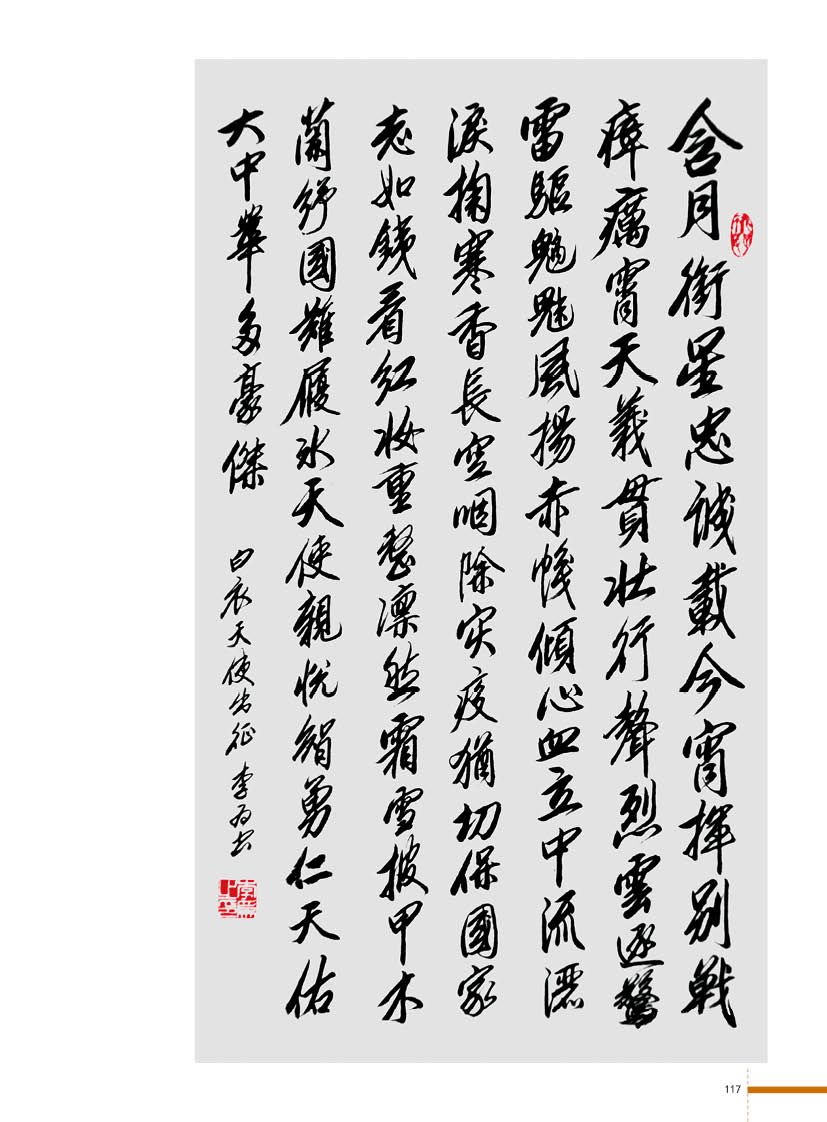 含月銜星忠誠載今宵揮別戰
瘴癘霄天義貫壯行聲烈雲逐驚
雷驅魑魅風揚赤幟傾心血立中流灑
淚掬寒香長空咽除灾疫猶切保國家
志如鐵看紅妝重整凛然霜雪披甲木
蘭紓國難履冰天使親悅智勇仁天佑
大中華多豪傑 白衣天使出征 李為书
117